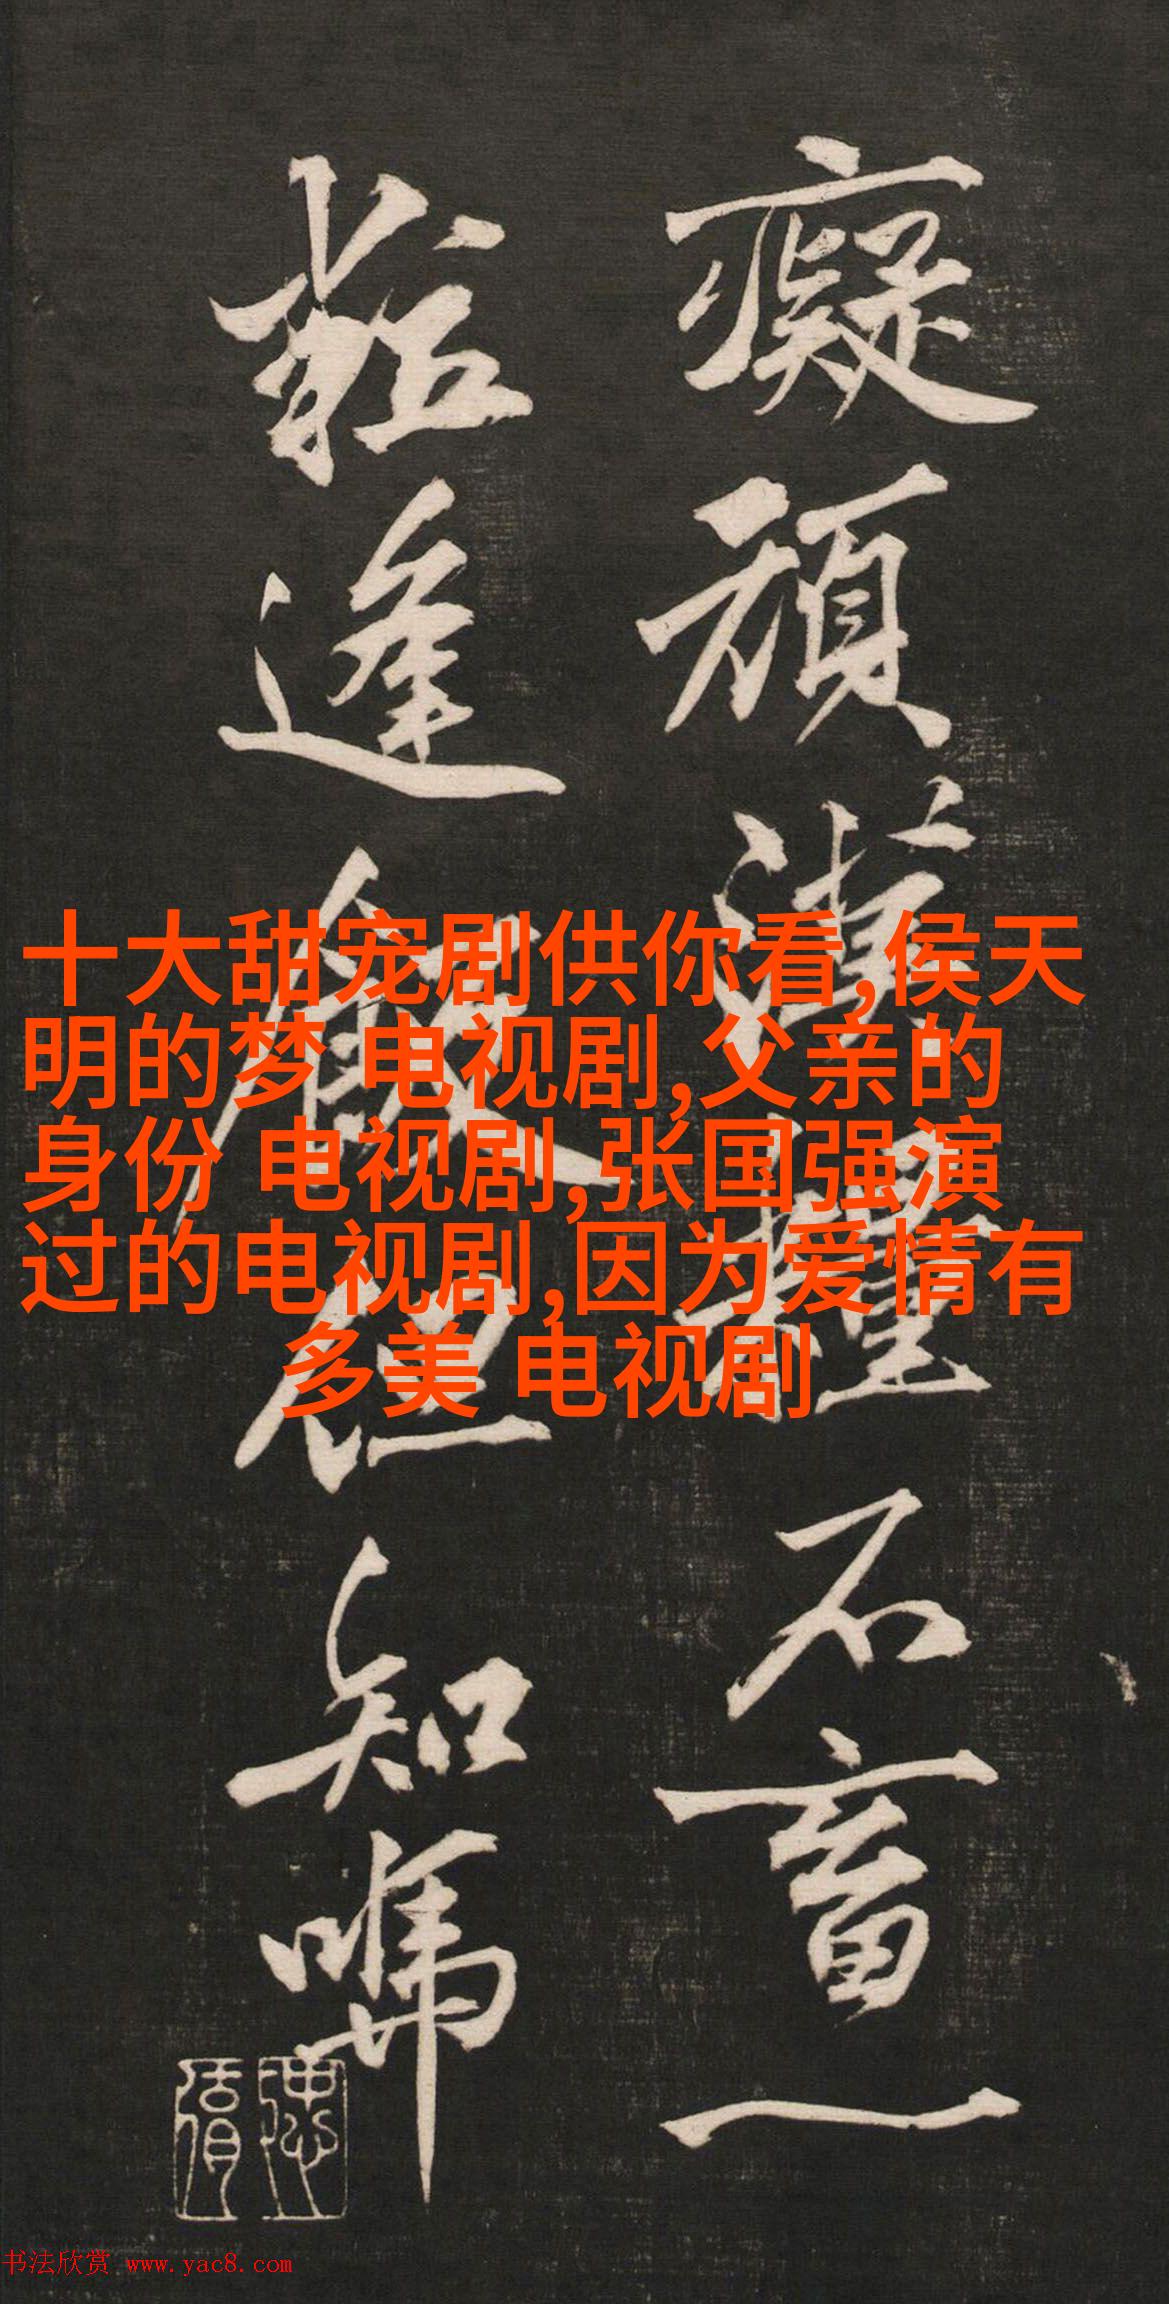 癡頑糧不畜一
粒逢飯但知
十大甜宠剧供你看,侯天
明的梦 电视剧,父亲的
身份 电视剧,张国强演
过的电视剧,因为爱情有
多美 电视剧
书法欣赏 www.yac8.com